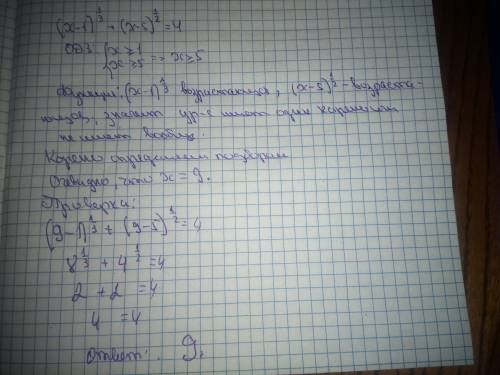 (x-1)^{1/3} + (x-5)^{1/2} = 4
ОДЗ: { x ≥ 1
{ x ≥ 5 => x ≥ 5
Функция (x-1)^{1/3} возрастающая, (x-5)^{1/2} - возрастаю-
щая, значит ур-е имеет один корень или
не имеет вообще.
Корень определяем подбором
Очевидно, что x = 9.
Проверка:
(9-1)^{1/3} + (9-5)^{1/2} = 4
8^{1/3} + 4^{1/2} = 4
2 + 2 = 4
4 = 4
Ответ: 9.